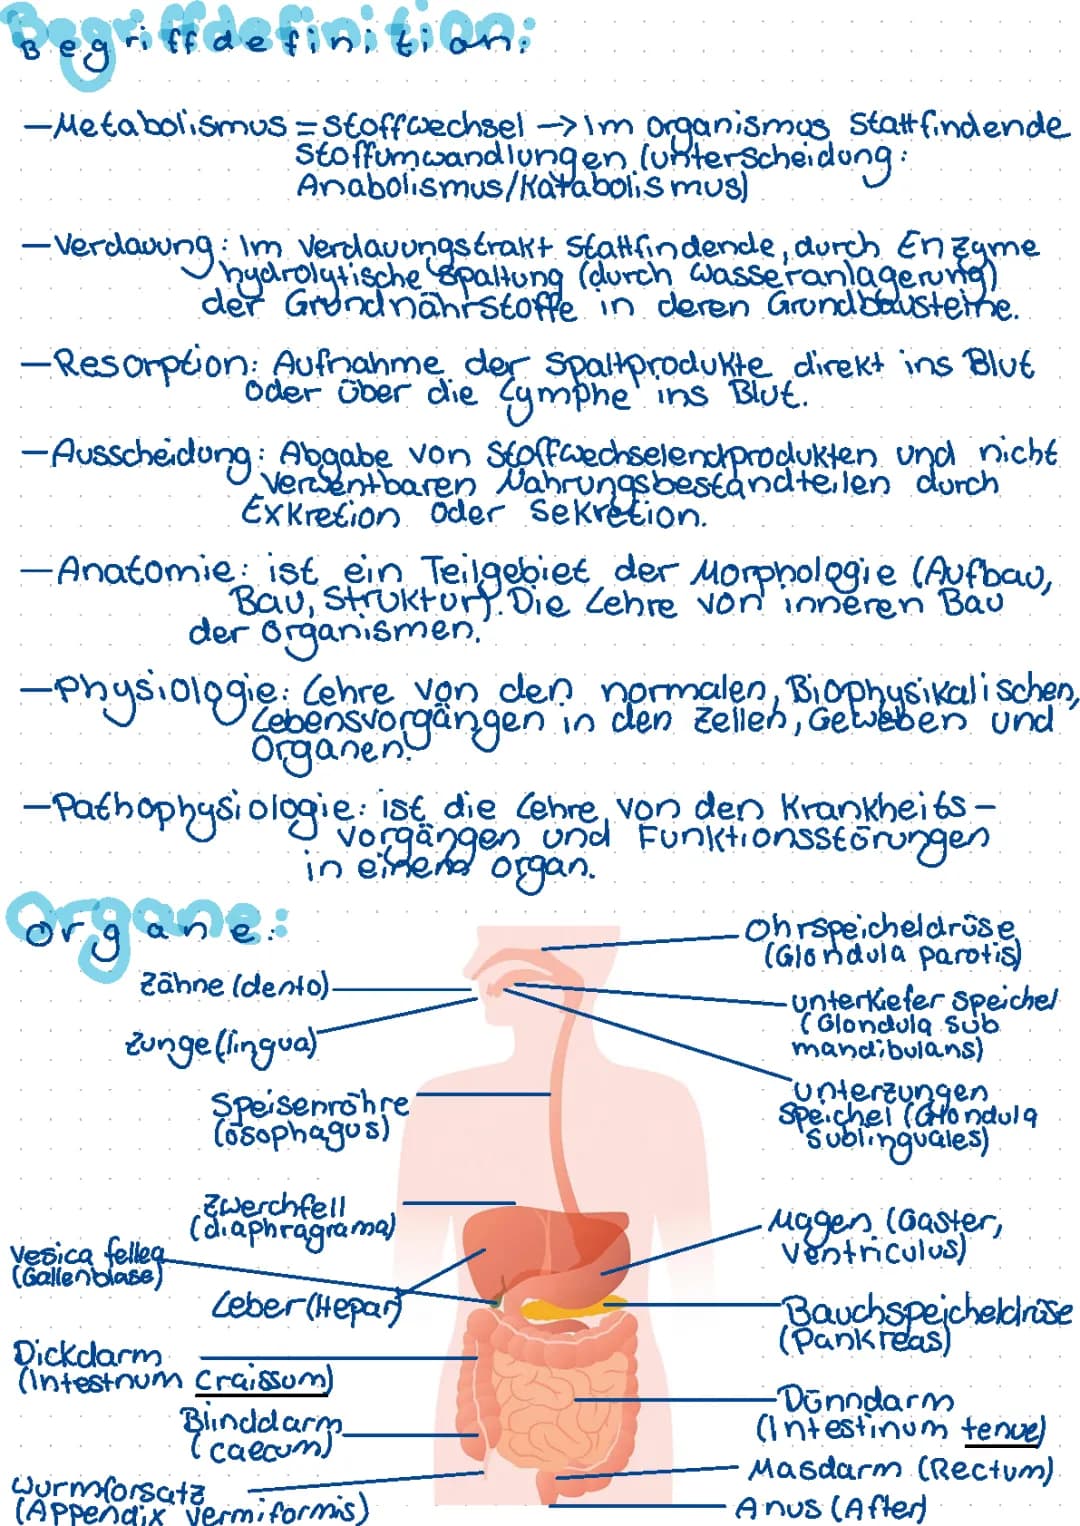 Begriffdefinition:
– Metabolismus = Stoffwechsel → Im Organismus stattfindende
Stoffumwandlungen (unterscheidung:
Anabolismus/Katabolismus)
– Verdauung: Im Verdauungstrakt stattfindende, durch Enzyme
hydrolytische Spaltung (durch Wasseranlagerung)
der Grundnährstoffe in deren Grundbausteine.
– Resorption: Aufnahme der Spaltprodukte direkt ins Blut
oder über die Lymphe ins Blut.
– Ausscheidung: Abgabe von Stoffwechselendprodukten und nicht
verwentbaren Nahrungsbestandteilen durch
Exkretion oder Sekretion.
– Anatomie: ist ein Teilgebiet der Morphologie (Aufbau,
Bau, Struktur). Die Lehre von inneren Bau
der Organismen.
– Physiologie: Lehre von den normalen, Biophysikalischen,
Lebensvorgängen in den Zellen, Geweben und
Organen.
– Pathophysiologie: ist die Lehre von den Krankheits-
vorgängen und Funktionsstörungen
in einem Organ.
Organe:
Ohrspeicheldrüse
(Glondula parotis)
Zähne (dento)
unterkiefer Speichel
(Glondula sub
mandibulans)
Zunge (lingua)
unterzungen
Speichel (Glondula
Sublinguales)
Speisenröhre
(ösophagus)
Zwerchfell
(diaphragrama)
Magen (Gaster,
ventriculus)
Vesica fellea
(Gallenblase)
Leber (Hepar)
Bauchspeicheldrüse
(Pankreas)
Dickdarm
(Intestnum craissum)
Dünndarm
(Intestinum tenue)
Blinddarm
(caecum)
Masdarm (Rectum)
Wurmforsatz
(Appendix vermiformis)
Anus (After)